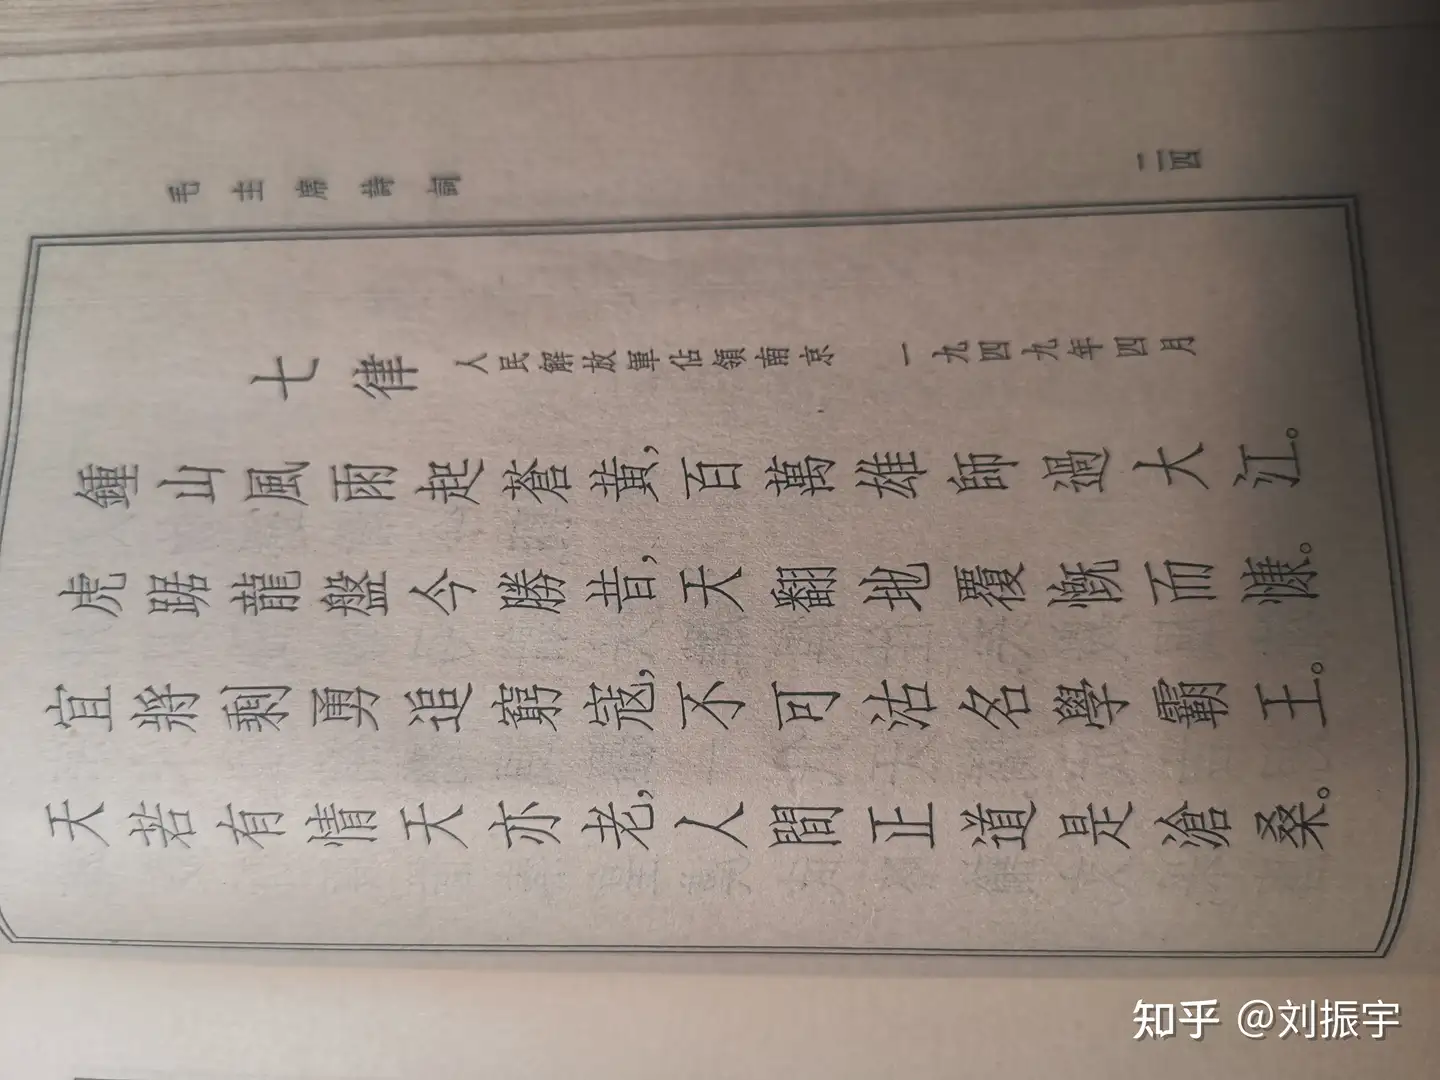 毛主席詩詞
一四
七律
人民解放軍佔領南京 一九四九年四月
鍾山風雨起蒼黃，百萬雄師過大江。
虎踞龍盤今勝昔，天翻地覆慨而慷。
宜將剩勇追窮寇，不可沽名學霸王。
天若有情天亦老，人間正道是滄桑。
知乎 @刘振宇